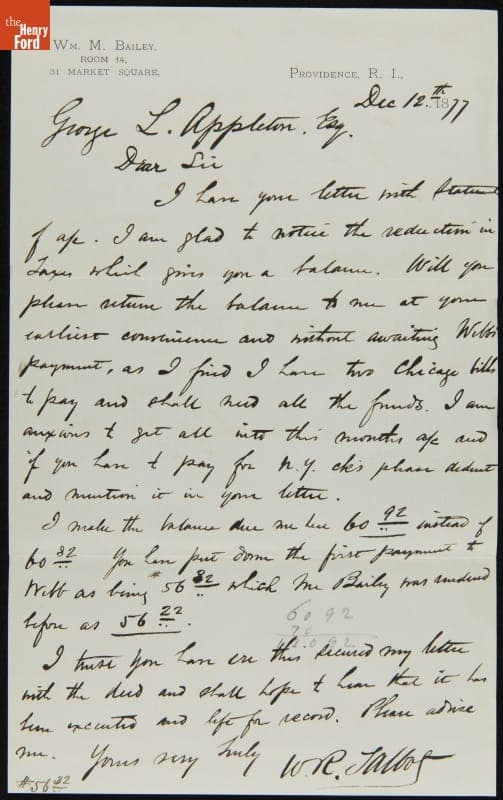 the
Henry
Ford
WM. M. BAILEY,
ROOM 14,
31 MARKET SQUARE,
PROVIDENCE, R. I.,
Dec 12th 1877
George L. Appleton, Esq.
Dear Sir
I have your letter with Statement
of a/c. I am glad to notice the reduction in
Taxes which gives you a balance. Will you
please return the balance to me at your
earliest convenience and without awaiting Webb's
payment, as I find I have two Chicago bills
to pay and shall need all the funds. I am
anxious to get all into this months a/c and
if you have to pay for N.Y. ck's please deduct
and mention it in your letter.
I make the balance due me here 60 92 instead of
60 82 You have put down the first payment to
Webb as being $56 32 which Mr Bailey was
before as 56 22.
60 92
I trust you have ere this received my letter
with the deed and shall hope to hear that it has
been executed and left for record. Please advise
me. Yours very truly
W. R. Talbot
#56 32